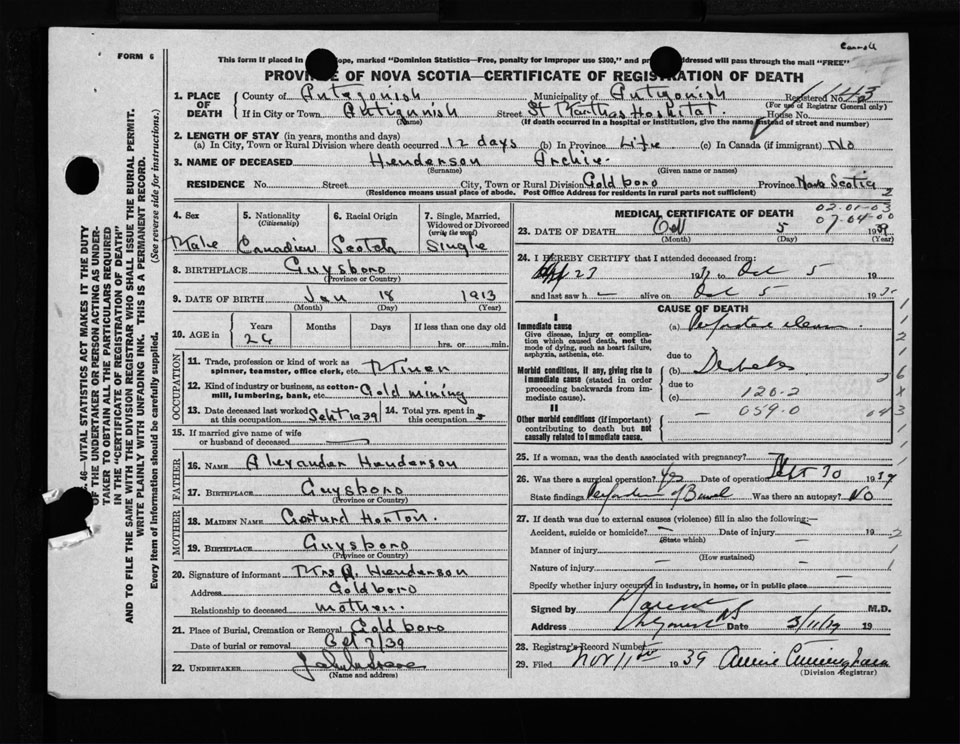 Carroll
FORM 6
This form if placed in ope, marked "Dominion Statistics—Free, penalty for improper use $300," and pr addressed will pass through the mail "FREE"
PROVINCE OF NOVA SCOTIA—CERTIFICATE OF REGISTRATION OF DEATH
1. PLACE OF DEATH
County of Antigonish Municipality of Antigonish Registered No. 43
(For use of Registrar General only)
If in City or Town Antigonish Street St Marthas Hospital House No.
(Name) (If death occurred in a hospital or institution, give the name instead of street and number)
2. LENGTH OF STAY (in years, months and days)
(a) In City, Town or Rural Division where death occurred 12 days (b) In Province Life (c) In Canada (if immigrant) No
3. NAME OF DECEASED Henderson Archie
(Surname) (Given name or names)
RESIDENCE No. Street City, Town or Rural Division Goldboro Province Nova Scotia
2
(Residence means usual place of abode. Post Office Address for residents in rural parts not sufficient)
4. Sex
Male
5. Nationality
(Citizenship)
Canadian
6. Racial Origin
Scotch
7. Single, Married, Widowed or Divorced
(write the word)
Single
8. BIRTHPLACE Guysboro
(Province or Country)
9. DATE OF BIRTH Jan 18 1913
(Month) (Day) (Year)
10. AGE in
Years Months Days If less than one day old
26
hrs. or min.
OCCUPATION
11. Trade, profession or kind of work as
spinner, teamster, office clerk, etc. Miner
12. Kind of industry or business, as cotton-
mill, lumbering, bank, etc. Gold mining
13. Date deceased last worked at this occupation Sept 1939
14. Total yrs. spent in this occupation
15. If married give name of wife
or husband of deceased
FATHER
16. NAME Alexander Henderson
17. BIRTHPLACE Guysboro
(Province or Country)
MOTHER
18. MAIDEN NAME Gerturd Horton.
19. BIRTHPLACE Guysboro
(Province or Country)
20. Signature of informant Mrs A. Henderson
Address Goldboro
Relationship to deceased mother.
21. Place of Burial, Cremation or Removal Goldboro
Date of burial or removal Oct 7/39
22. UNDERTAKER
(Name and address)
MEDICAL CERTIFICATE OF DEATH
02-01-03
07-04-00
23. DATE OF DEATH Oct 5 1939
(Month) (Day) (Year)
24. I HEREBY CERTIFY that I attended deceased from:
23 19 to Oct 5 19
and last saw h alive on Oct 5 19
CAUSE OF DEATH
I
Immediate cause
Give disease, injury or complica-
tion which caused death, not the
mode of dying, such as heart failure,
asphyxia, asthenia, etc.
(a) Perforated
due to
Morbid conditions, if any, giving rise to
immediate cause (stated in order
proceeding backwards from im-
mediate cause).
(b) Diabetes
due to
(c) 120.2
II
Other morbid conditions (if important)
contributing to death but not
causally related to immediate cause.
059.0 043
25. If a woman, was the death associated with pregnancy?
26. Was there a surgical operation? yes Date of operation Sept 30 1939
State findings Perforation of Bowel Was there an autopsy? No
27. If death was due to external causes (violence) fill in also the following:—
Accident, suicide or homicide? Date of injury 19
(State which)
Manner of injury
(How sustained)
Nature of injury
Specify whether injury occurred in industry, in home, or in public place
Signed by M.D.
Address NS Date 3/11/39 19
28. Registrar's Record Number
29. Filed Nov 11th 1939 Annie Cunningham
(Division Registrar)
46—VITAL STATISTICS ACT MAKES IT THE DUTY
OF THE UNDERTAKER OR PERSON ACTING AS UNDER-
TAKER TO OBTAIN ALL THE PARTICULARS REQUIRED
IN THE "CERTIFICATE OF REGISTRATION OF DEATH"
AND TO FILE THE SAME WITH THE DIVISION REGISTRAR WHO SHALL ISSUE THE BURIAL PERMIT.
WRITE PLAINLY WITH UNFADING INK. THIS IS A PERMANENT RECORD.
Every item of information should be carefully supplied. (See reverse side for instructions.)